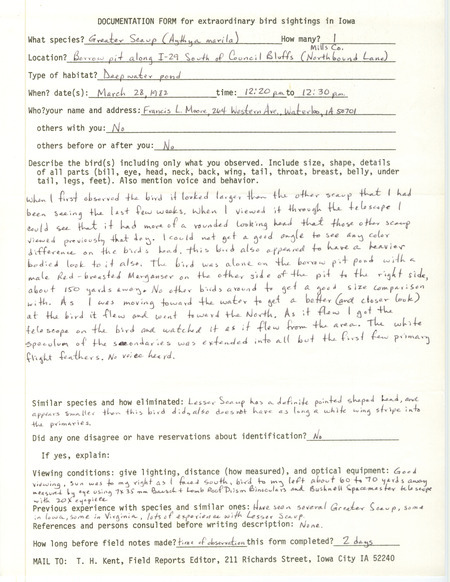 DOCUMENTATION FORM for extraordinary bird sightings in Iowa
What species? Greater Scaup (Aythya marila) How many? 1
Mills Co.
Location? Borrow pit along I-29 South of Council Bluffs (Northbound Lane)
Type of habitat? Deep water pond
When? date(s): March 28, 1982 time: 12:20 pm to 12:30 pm
Who? your name and address: Francis L. Moore, 264 Western Ave., Waterloo, IA 50701
others with you: No
others before or after you: No
Describe the bird(s) including only what you observed. Include size, shape, details
of all parts (bill, eye, head, neck, back, wing, tail, throat, breast, belly, under
tail, legs, feet). Also mention voice and behavior.
When I first observed the bird it looked larger than the other scaup that I had
been seeing the last few weeks. When I viewed it through the telescope I
could see that it had more of a rounded looking head that those other scaup
viewed previously that day. I could not get a good angle to see any color
difference on the bird's head. This bird also appeared to have a heavier
bodied look to it also. The bird was alone on the borrow pit pond with a
male Red-breasted Merganser on the other side of the pit to the right side,
about 150 yards away. No other birds around to get a good size comparison
with. As I was moving toward the water to get a better (and closer look)
at the bird it flew and went toward the North. As it flew I got the
telescope on the bird and watched it as it flew from the area. The white
speculum of the secondaries was extended into all but the first few primary
flight feathers. No voice heard.
Similar species and how eliminated: Lesser Scaup has a definite pointed shaped head, and
appears smaller then this bird did, also does not have as long a white wing stripe into
the primaries.
Did any one disagree or have reservations about identification? No
If yes, explain:
Viewing conditions: give lighting, distance (how measured), and optical equipment: Good
viewing, sun was to my right as I faced south, bird to my left about 60 to 70 yards away
measured by eye using 7x35 mm Bausch & Lomb Roof Prism Binoculars and Bushnell Spacemaster telescope
with 20x eyepiece.
Previous experience with species and similar ones: Have seen several Greater Scaup, some
in Iowa, some in Virginia, lots of experience with Lesser Scaup.
References and persons consulted before writing description: None.
How long before field notes made? time of observation this form completed? 2 days
MAIL TO: T. H. Kent, Field Reports Editor, 211 Richards Street, Iowa City IA 52240